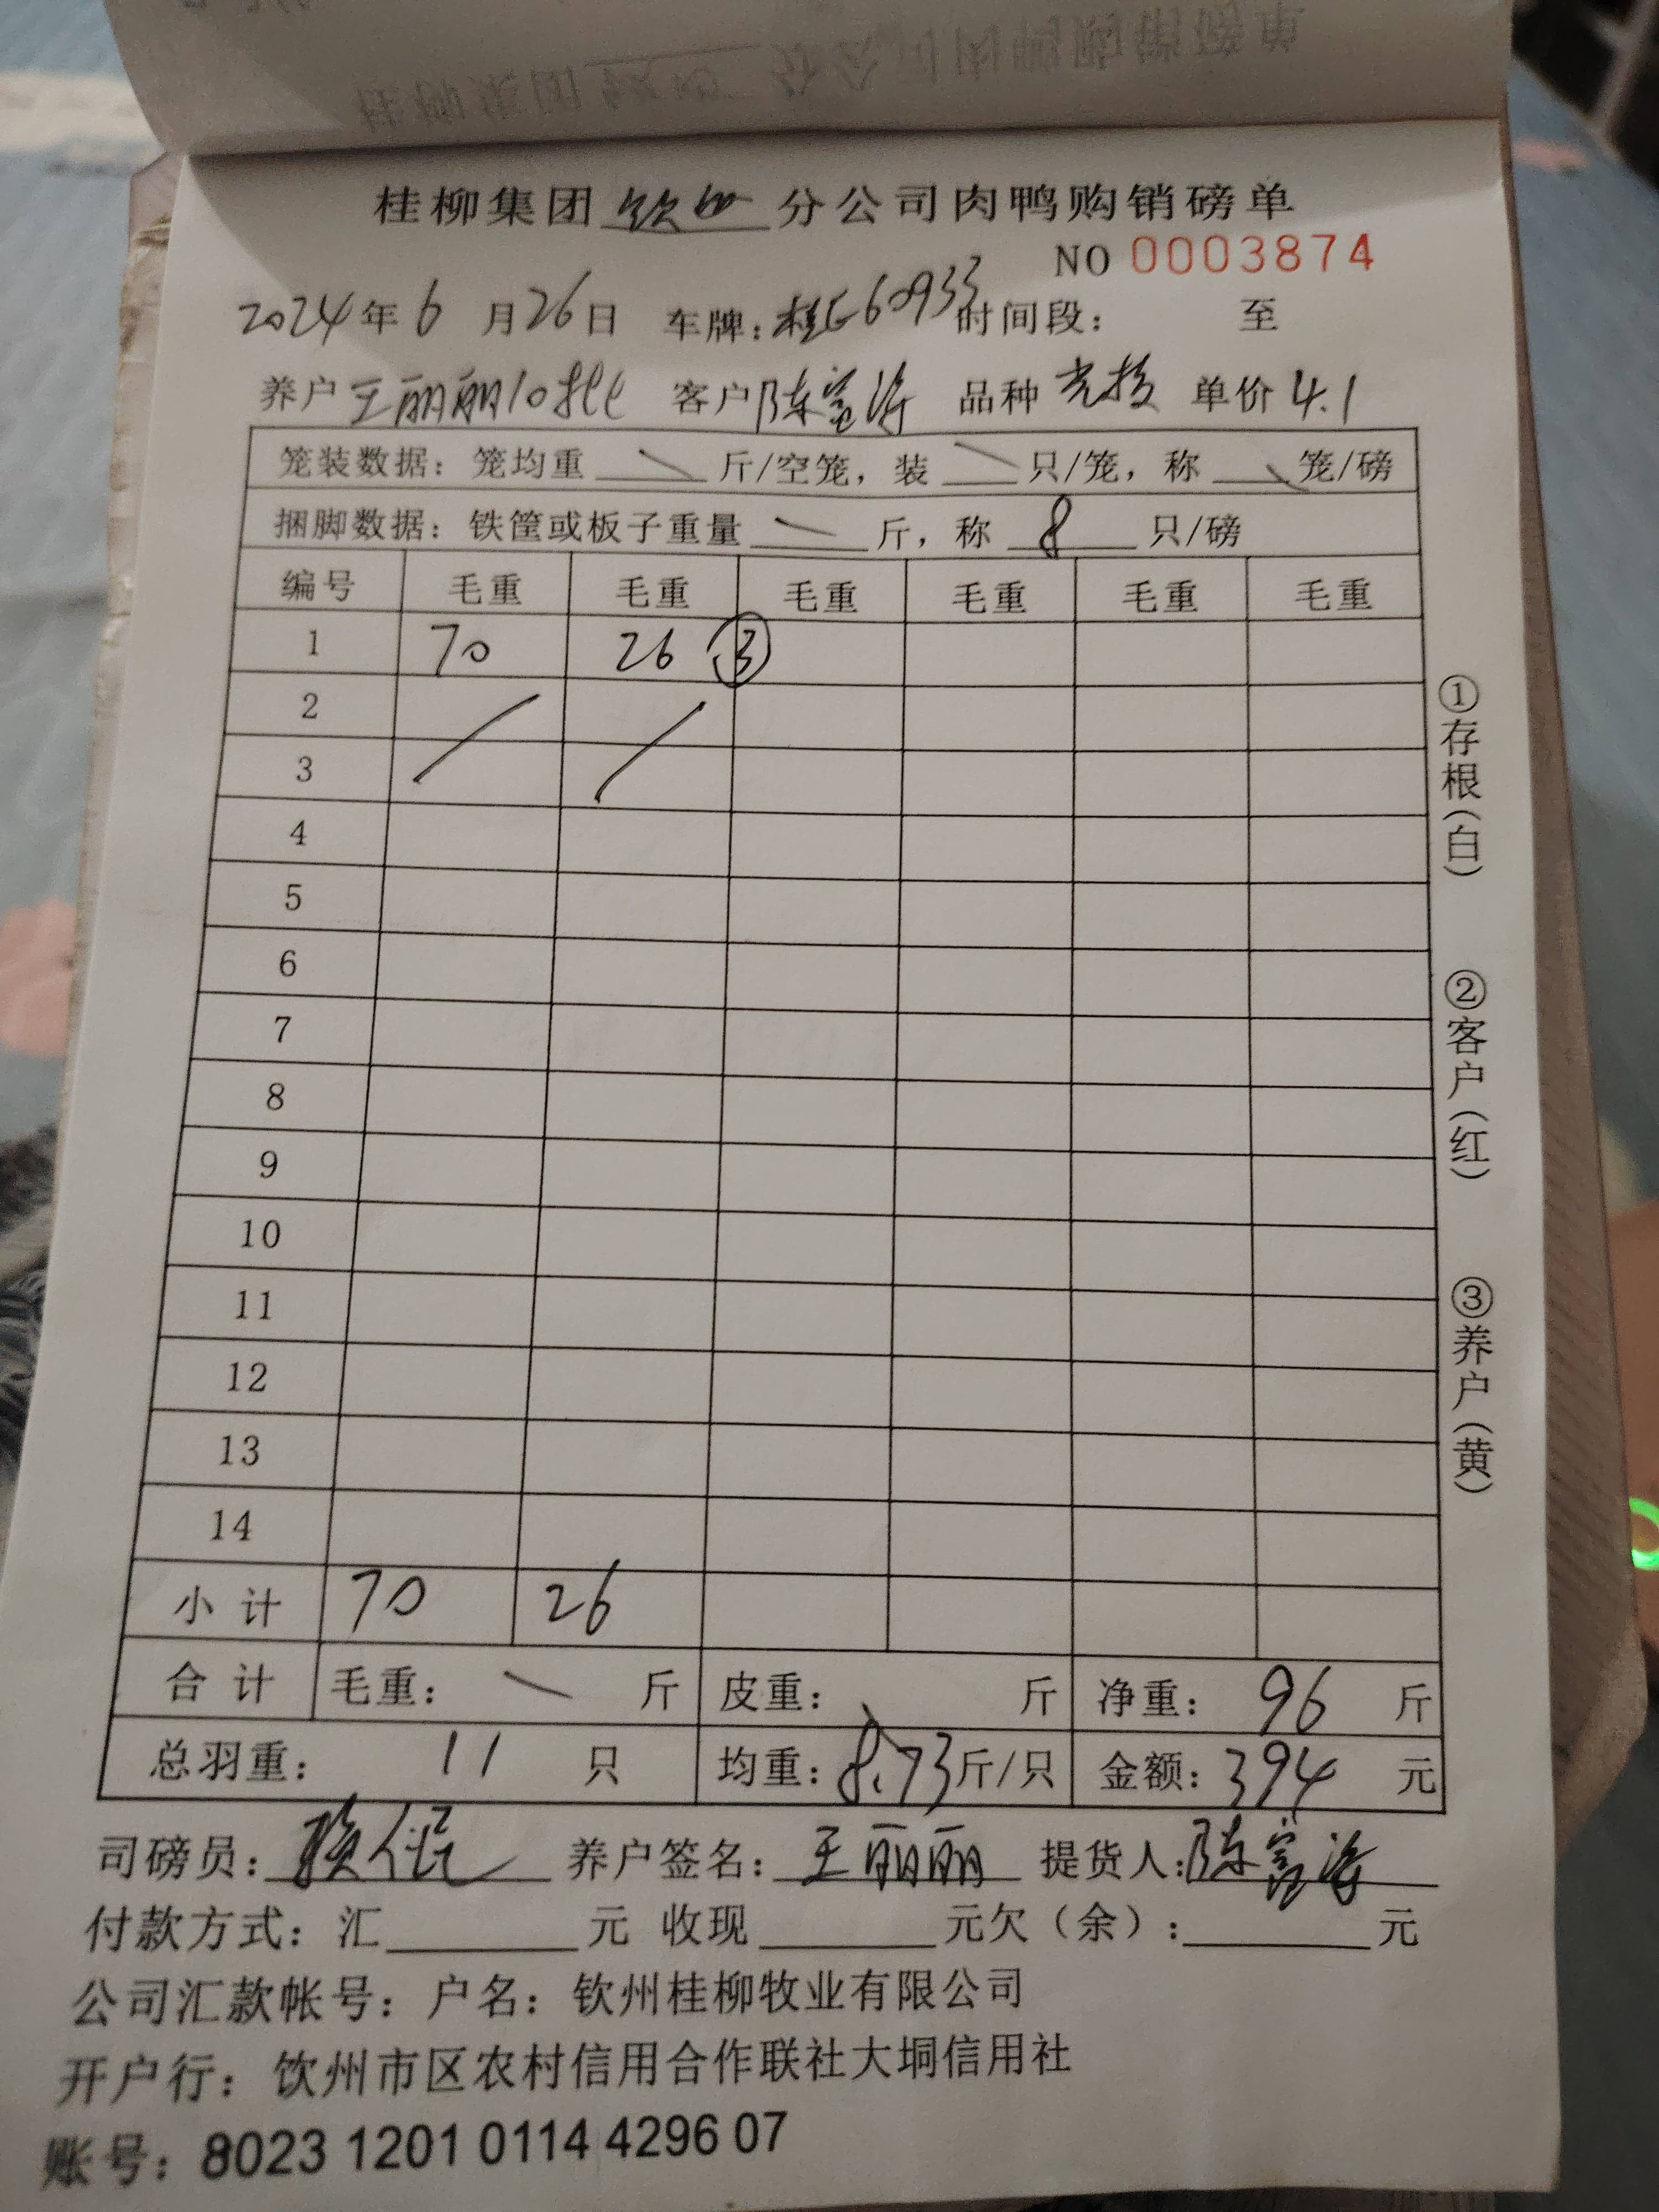 桂柳集团钦州分公司肉鸭购销磅单
NO 0003874
2024年6月26日 车牌:桂E60933 时间段: 至
养户 王丽丽10批 客户 陈富海 品种 单价 4.1
笼装数据: 笼均重 \ 斤/空笼, 装 \ 只/笼, 称 \ 笼/磅
捆脚数据: 铁筐或板子重量 \ 斤, 称 8 只/磅
编号 毛重 毛重 毛重 毛重 毛重 毛重
1 70 26 ③
2 / /
3
4
5
6
7
8
9
10
11
12
13
14
小计 70 26
合计 毛重: \ 斤 皮重: \ 斤 净重: 96 斤
总羽重: 11 只 均重: 8.73斤/只 金额: 394 元
司磅员: 养户签名: 王丽丽 提货人: 陈富海
付款方式: 汇 元 收现 元欠(余): 元
公司汇款帐号: 户名: 钦州桂柳牧业有限公司
开户行: 钦州市区农村信用合作联社大垌信用社
账号: 8023 1201 0114 4296 07
①存根(白)
②客户(红)
③养户(黄)